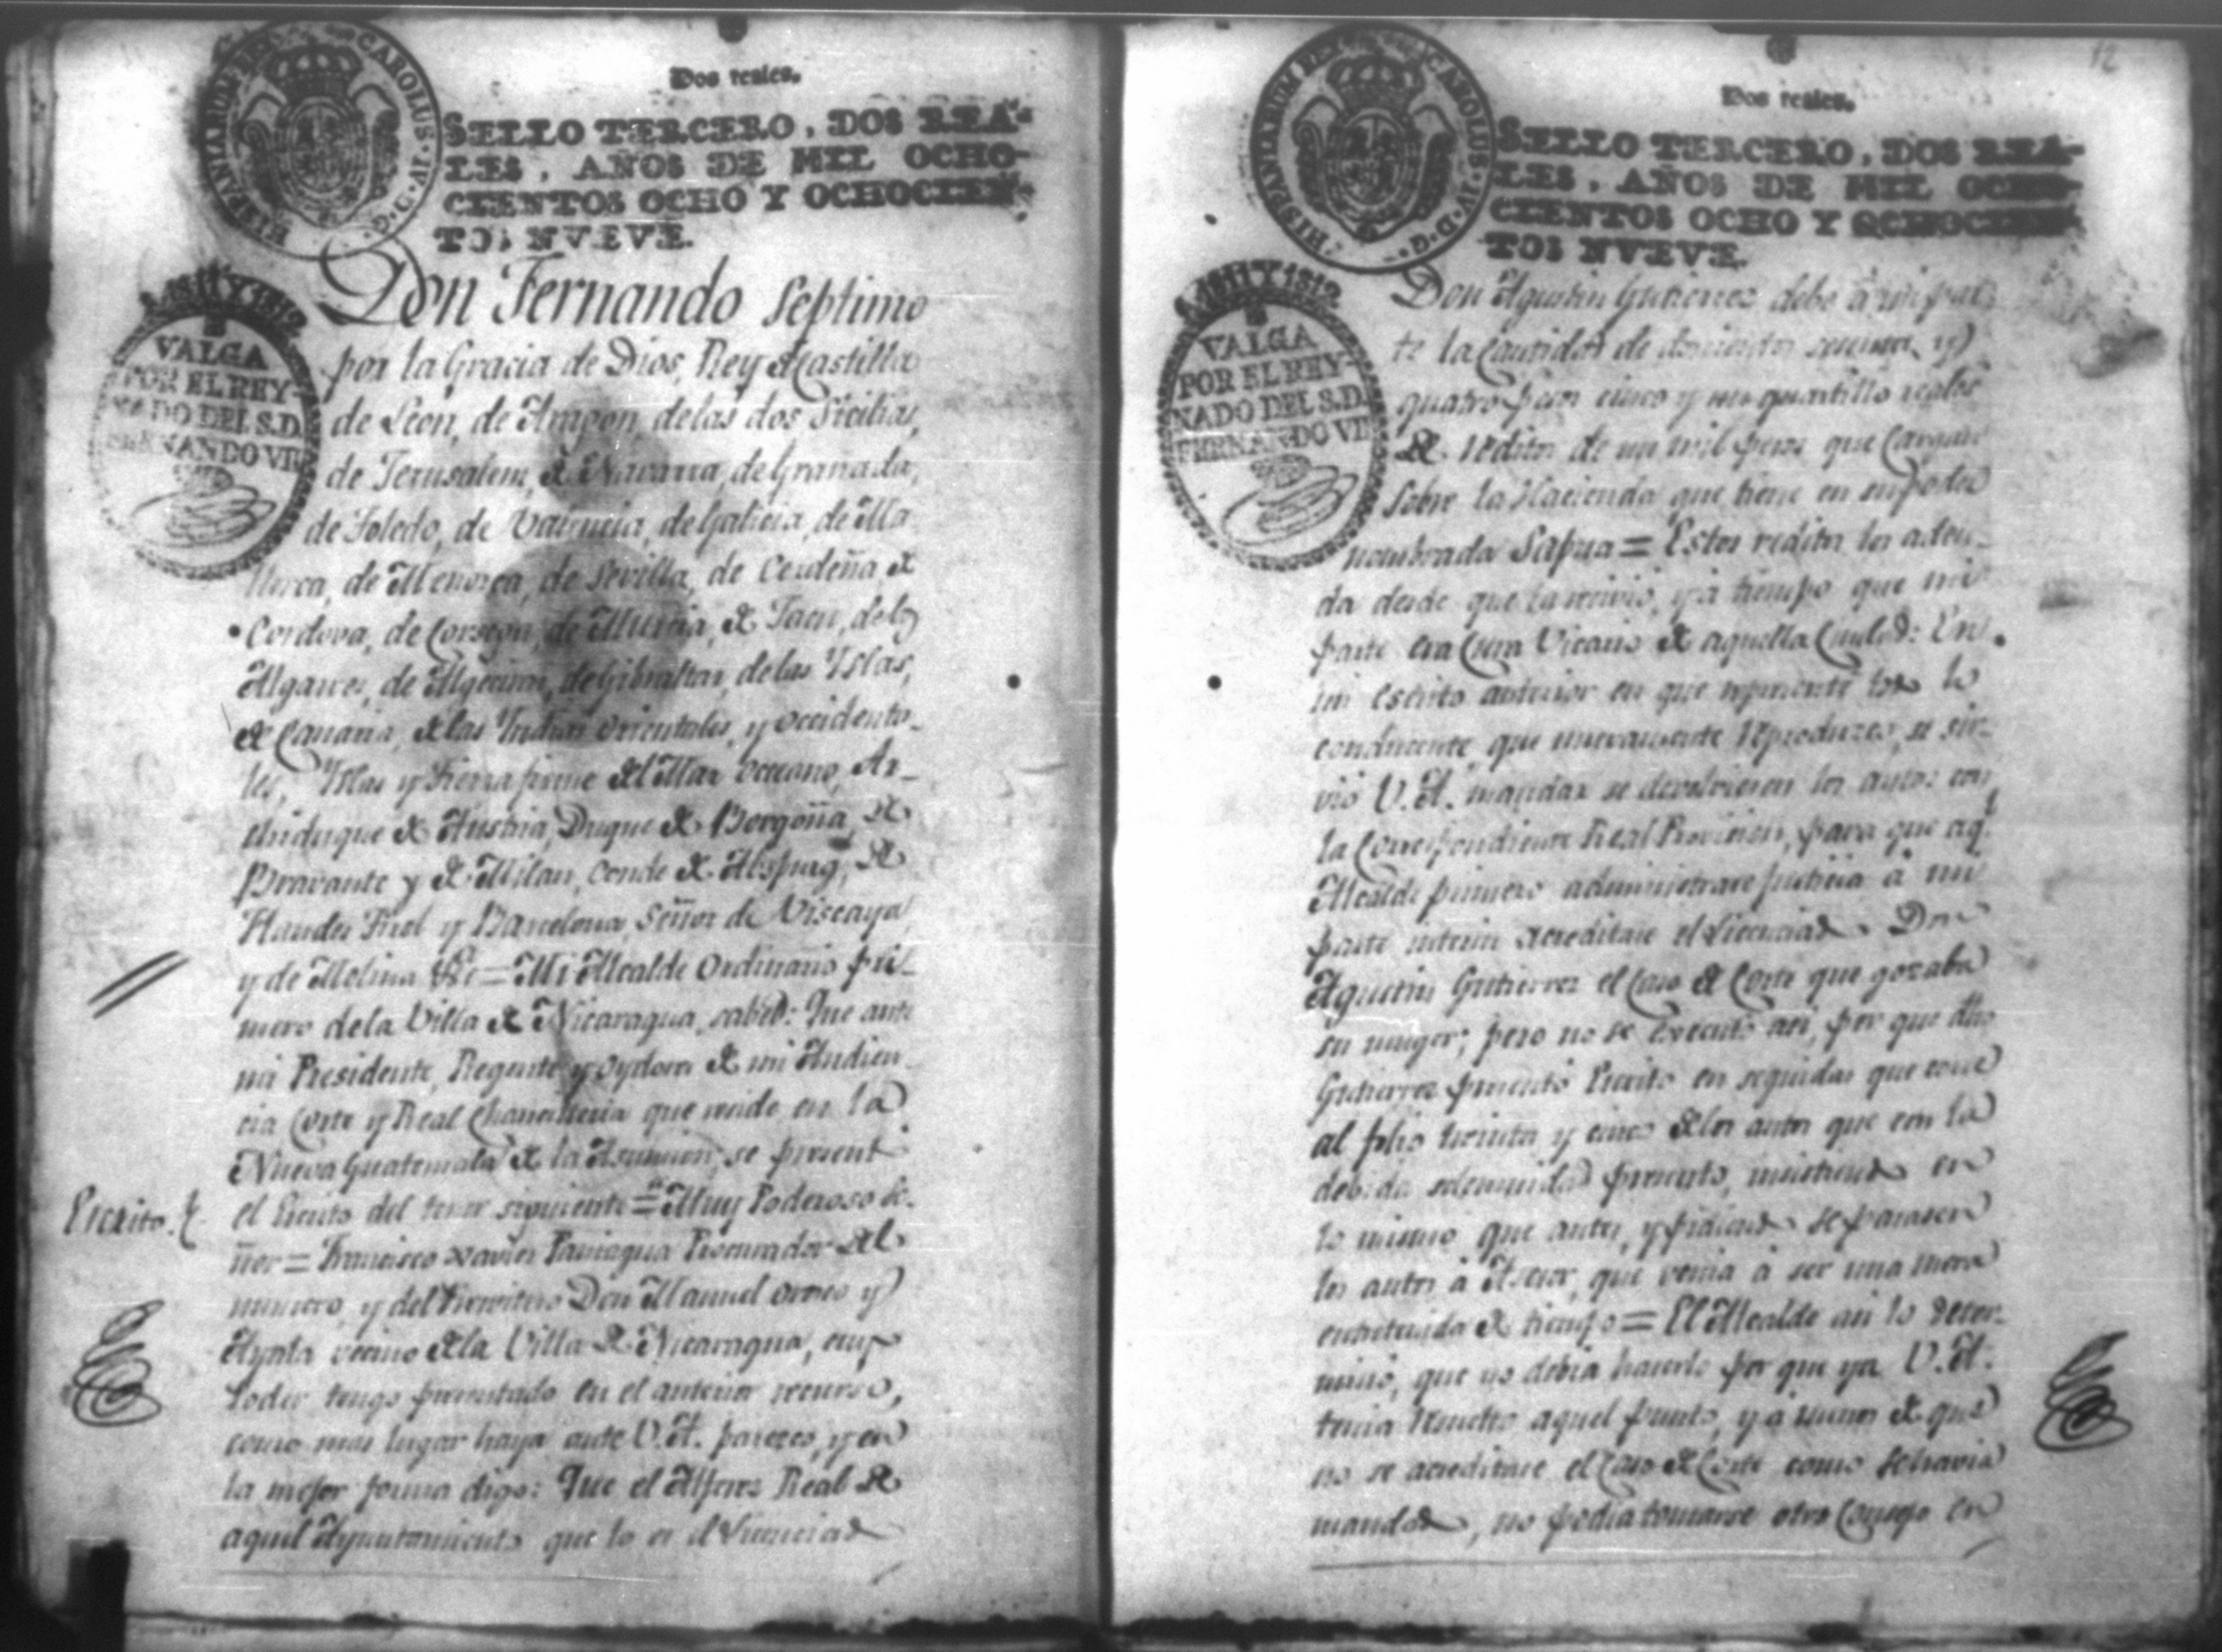 HISPANIARUM REX CAROLUS IV D.G.
Dos reales.
SELLO TERCERO, DOS REA-
LES, AÑOS DE MIL OCHO-
CIENTOS OCHO Y OCHOCIEN-
TOS NVEVE.
A. 1811 Y 1812.
VALGA
POR EL REY-
NADO DEL S.D.
FERNANDO VII
Don Fernando Septimo
por la Gracia de Dios, Rey de Castilla
de Leon, de Aragon, de las dos Sicilias,
de Jerusalem, de Navarra, de Granada,
de Toledo, de Valencia, de Galicia, de Ma
llorca, de Menorca, de Sevilla, de Cerdeña, de
Cordova, de Corsega, de Murcia, de Jaen, de los
Algarves, de Algeciras, de Gibraltar, de las Yslas,
de Canaria, de las Yndias orientales, y occidenta-
les, Yslas y tierra firme del Mar occeano, Ar-
chiduque de Austria, Duque de Borgoña, de
Bravante y de Milan, Conde de Abspurg, de
Flandes Tirol y Barcelona, Señor de Viscaya
y de Molina &c = Mi Alcalde Ordinario pri-
mero de la Villa de Nicaragua, sabed: Que ante
mi Presidente, Regente y oydores de mi Audien
cia Corte y Real Chancilleria que reside en la
Nueva Guatemala de la Asumcion, se presentó
Escrito.
el Escrito del tenor siguiente = Muy Poderoso Se-
ñor = Francisco Xavier Paniagua Procurador del
numero, y del Don Manuel y
Ayala vecino de la Villa de Nicaragua, cuyo
Poder tengo presentado en el anterior recurso,
como mas lugar haya ante V.A. paresco, y en
la mejor forma digo: Que el Alferez Real de
aquel Ayuntamiento que lo es el Licenciado
12
HISPANIARUM REX CAROLUS IV D.G.
Dos reales.
SELLO TERCERO, DOS REA-
LES, AÑOS DE MIL OCHO-
CIENTOS OCHO Y OCHOCIEN-
TOS NVEVE.
A. 1811 Y 1812.
VALGA
POR EL REY-
NADO DEL S.D.
FERNANDO VII
Don Agustin Gutierrez debe á mi par
te la Cantidad de doscientos sesenta, y
quatro pesos cinco y un quartillo reales
de reditos de un mil pesos que cargan
sobre la Hacienda que tiene en su poder
nombrada Sapoa = Estos reditos los adeu-
da desde que la recivió, y á tiempo que mi
parte era Cura Vicario de aquella Ciudad: En
mi escrito anterior en que representé todo lo
conducente, que nuevamente reproduzco, se sir-
vió V.A. mandar se devolviesen los autos con
la Correspondiente Real Provision, para que aql.
Alcalde primero administrase justicia á mi
parte interin acreditase el Licenciado Don
Agustin Gutierrez el Caso de Corte que gozaba
su muger; pero no se executó asi, por que dho
Gutierrez presentó Escrito en seguida que corre
al folio treinta y cinco de los autos que con la
debida solemnidad presento, insistiendo en
lo mismo que antes, y pidiendo se pasasen
los autos á Asesor, que venia á ser una mera
entretenida de tiempo = El Alcalde asi lo deter-
minó, que no debia hacerlo por que ya V.A.
tenia resuelto aquel punto, y á menos de que
no se acreditase el Caso de Corte como se havia
mandado, no podia tomarse otro Consejo en